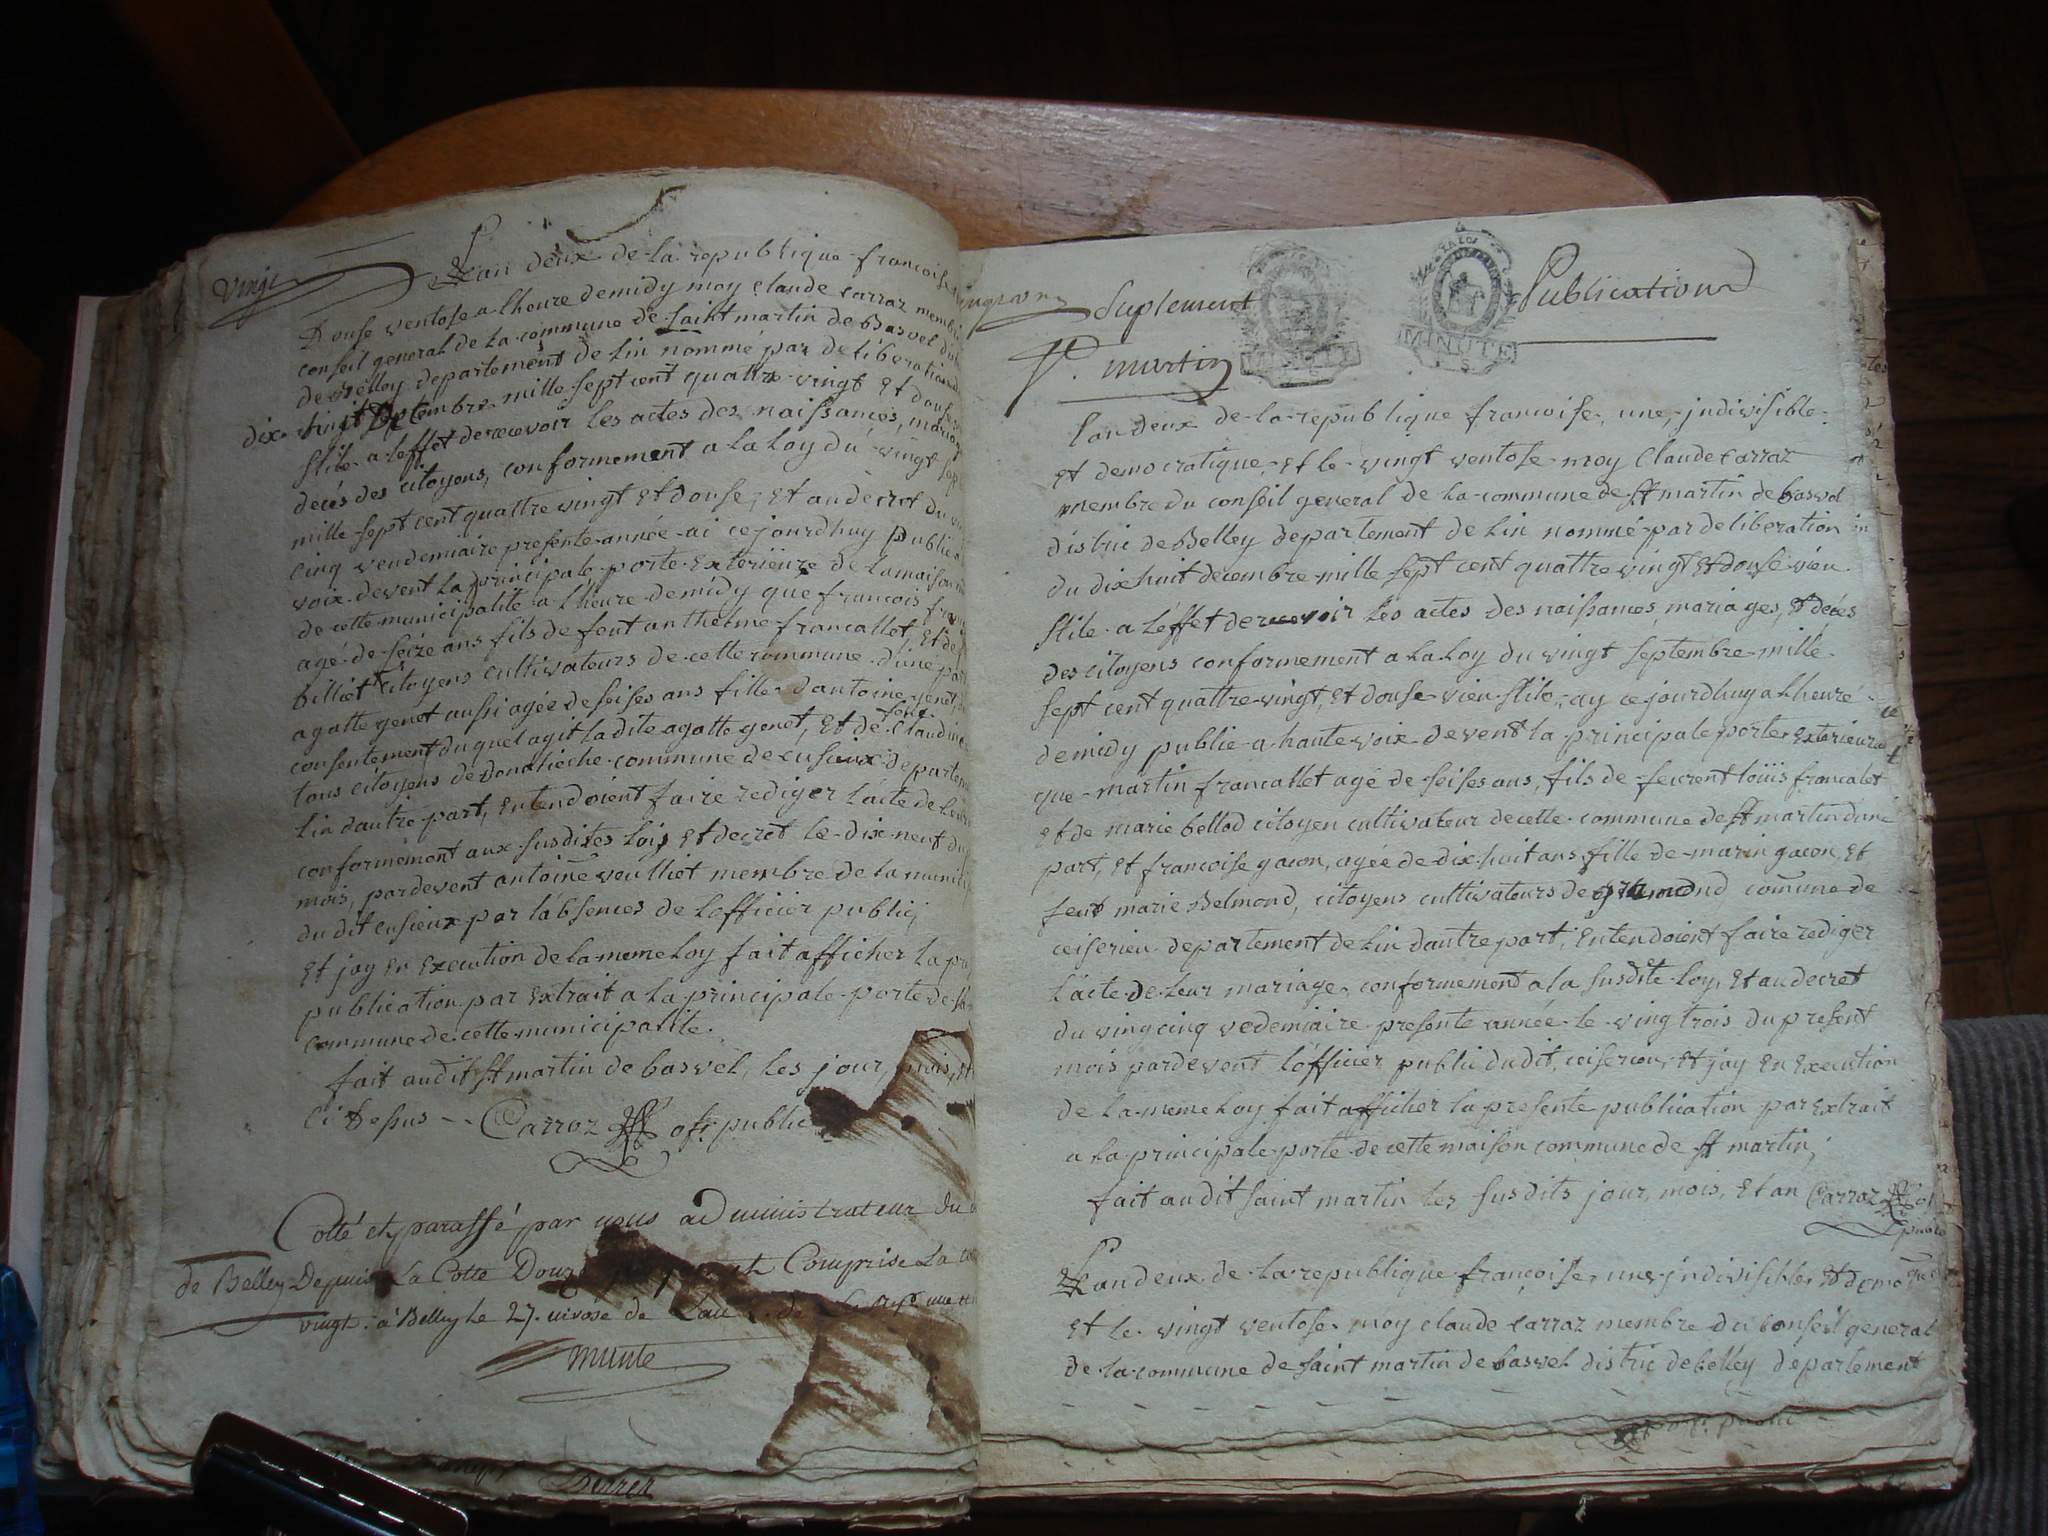 vingt
L'an deux de la republique francoise
Douse ventose a lheure de midy moy claude carraz membre
conseil general de la commune de saint martin de Basvel
de Belley departement de Lin nommé par deliberation
dix huit decembre mille sept cent quattre vingt Et douse
stile a leffet de recevoir les actes des naissances, mariages
decés des citoyens, conformement a la Loy du vingt sep
mille sept cent quattre vingt Et douse, Et au decret du
cinq vendemiaire presente année ai cejourdhuy publié a
voix devent la principale porte Exterieure de la maison
de cette municipalité a lheure de midy que francois
agé de seize ans fils de feut anthelme francallet, Et de
billiet citoyens cultivateurs de cette commune d'une part
agatte genet aussi agée de seises ans fille dantoine genet,
consentement duquel agit ladite agatte genet, Et de feue claudine
tous citoyens de Donalieche commune de cusieux departement
Lin dautre part, Entendoient faire rediger Lácte de leur
conformément aux susdites lois Et decret le dix neuf du
mois, pardevent antoine veulliet membre de la munici
du dit cusieux par lábsences de Lofficier public,
Et jay En Execution de la meme Loy fait afficher la pre
publication par Extrait a la principale porte de la
commune de cette municipalité.
fait audit st martin de basvel, les jour, mois, Et
ci Dessus -- Carroz ofi public
Cotté et paraffé par nous administrateur du
de Belley Depuis La Cotte Douze Comprise La
vingt. à Belley le 27. nivose de Lan
Suplement Publication
MINUTE MINUTE
St. martin
Lan deux de la republique francoise, une, jndivisible
Et democratique, Et le vingt ventose moy Claude carraz
membre du conseil general de la commune de st martin de basvel
distric de Belley departement de Lin nommé par deliberation
du dixhuit decembre mille sept cent quattre vingt Et douse vieu
stile a Léffet de recevoir Les actes des naissances, mariages, Et décés
des citoyens conformement a la Loy du vingt septembre mille
sept cent quattre vingt, Et douse vieu stile, ay cejourdhuy a lheure
de midy publié a haute voix devent la principale porte Exterieure
que martin francallet agé de seises ans, fils de feu rent loüis francalet
Et de marie bellod citoyen cultivateur de cette commune de st martin dune
part, Et francoise gacon, agée de dix huit ans fille de marin gacon, Et
feue marie Belmond, citoyens cultivateurs de commune de
ceiserieu departement de Lin dautre part, Entendoient faire rediger
Lácte de Leur mariage conformement a la susdite Loy, Et au decret
du vingcinq vedemiaire presente année le vingtrois du present
mois pardevent Lófficier public dudit, ceiserieu, Et jay En Execution
de La meme Loy fait afficher la presente publication par Extrait
a la principale porte de cette maison commune de st martin,
fait audit saint martin les susdits jour, mois, Et an Carraz of
public
Lan deux de la republique françoise, une, jndivisible, Et democ
Et le vingt ventose moy claude carraz membre du conseil general
de la commune de saint martin de basvel distric de belley departement